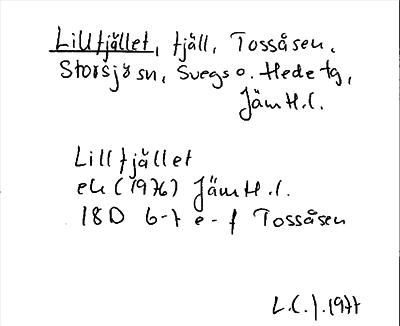 Lillfjället, fjäll, Tossåsen,
Storsjö sn, Svegs o. Hede tg,
Jämtl.
Lillfjället
ek (1976) Jämtl.
18D 6-7 e-f Tossåsen
1977